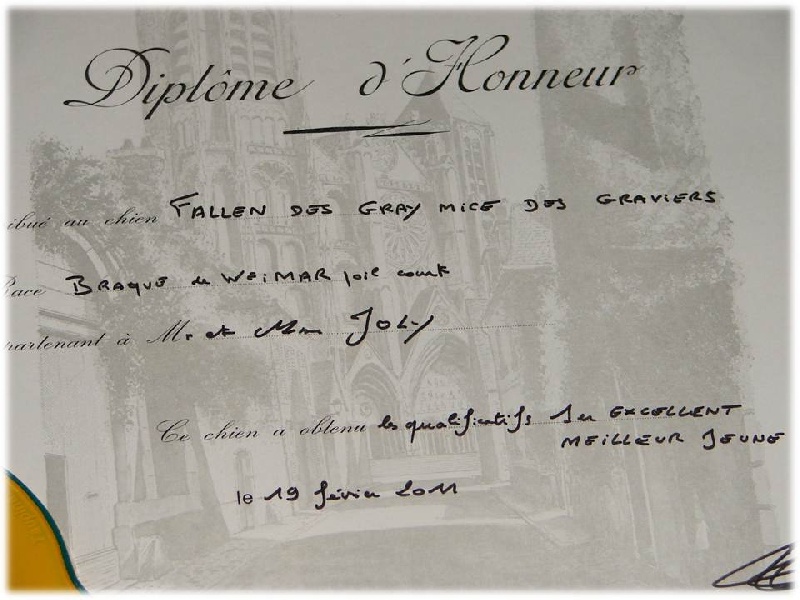 Diplôme d'Honneur
ibué au chien FALLEN DES GRAY MICE DES GRAVIERS
Race BRAQUE de WEIMAR poil court
partenant à Mr et Mme JOLY
Ce chien a obtenu les qualificatifs 1er EXCELLENT
MEILLEUR JEUNE
le 19 février 2011